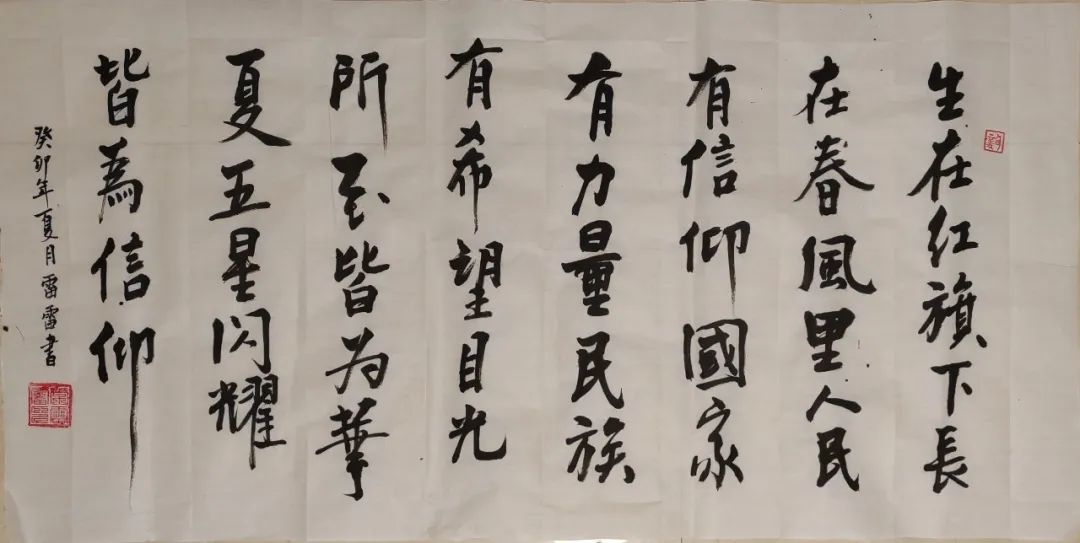 生在红旗下長
在春風里人民
有信仰國家
有力量民族
有希望目光
所至皆为華
夏五星闪耀
皆為信仰
癸卯年夏月雷雷書